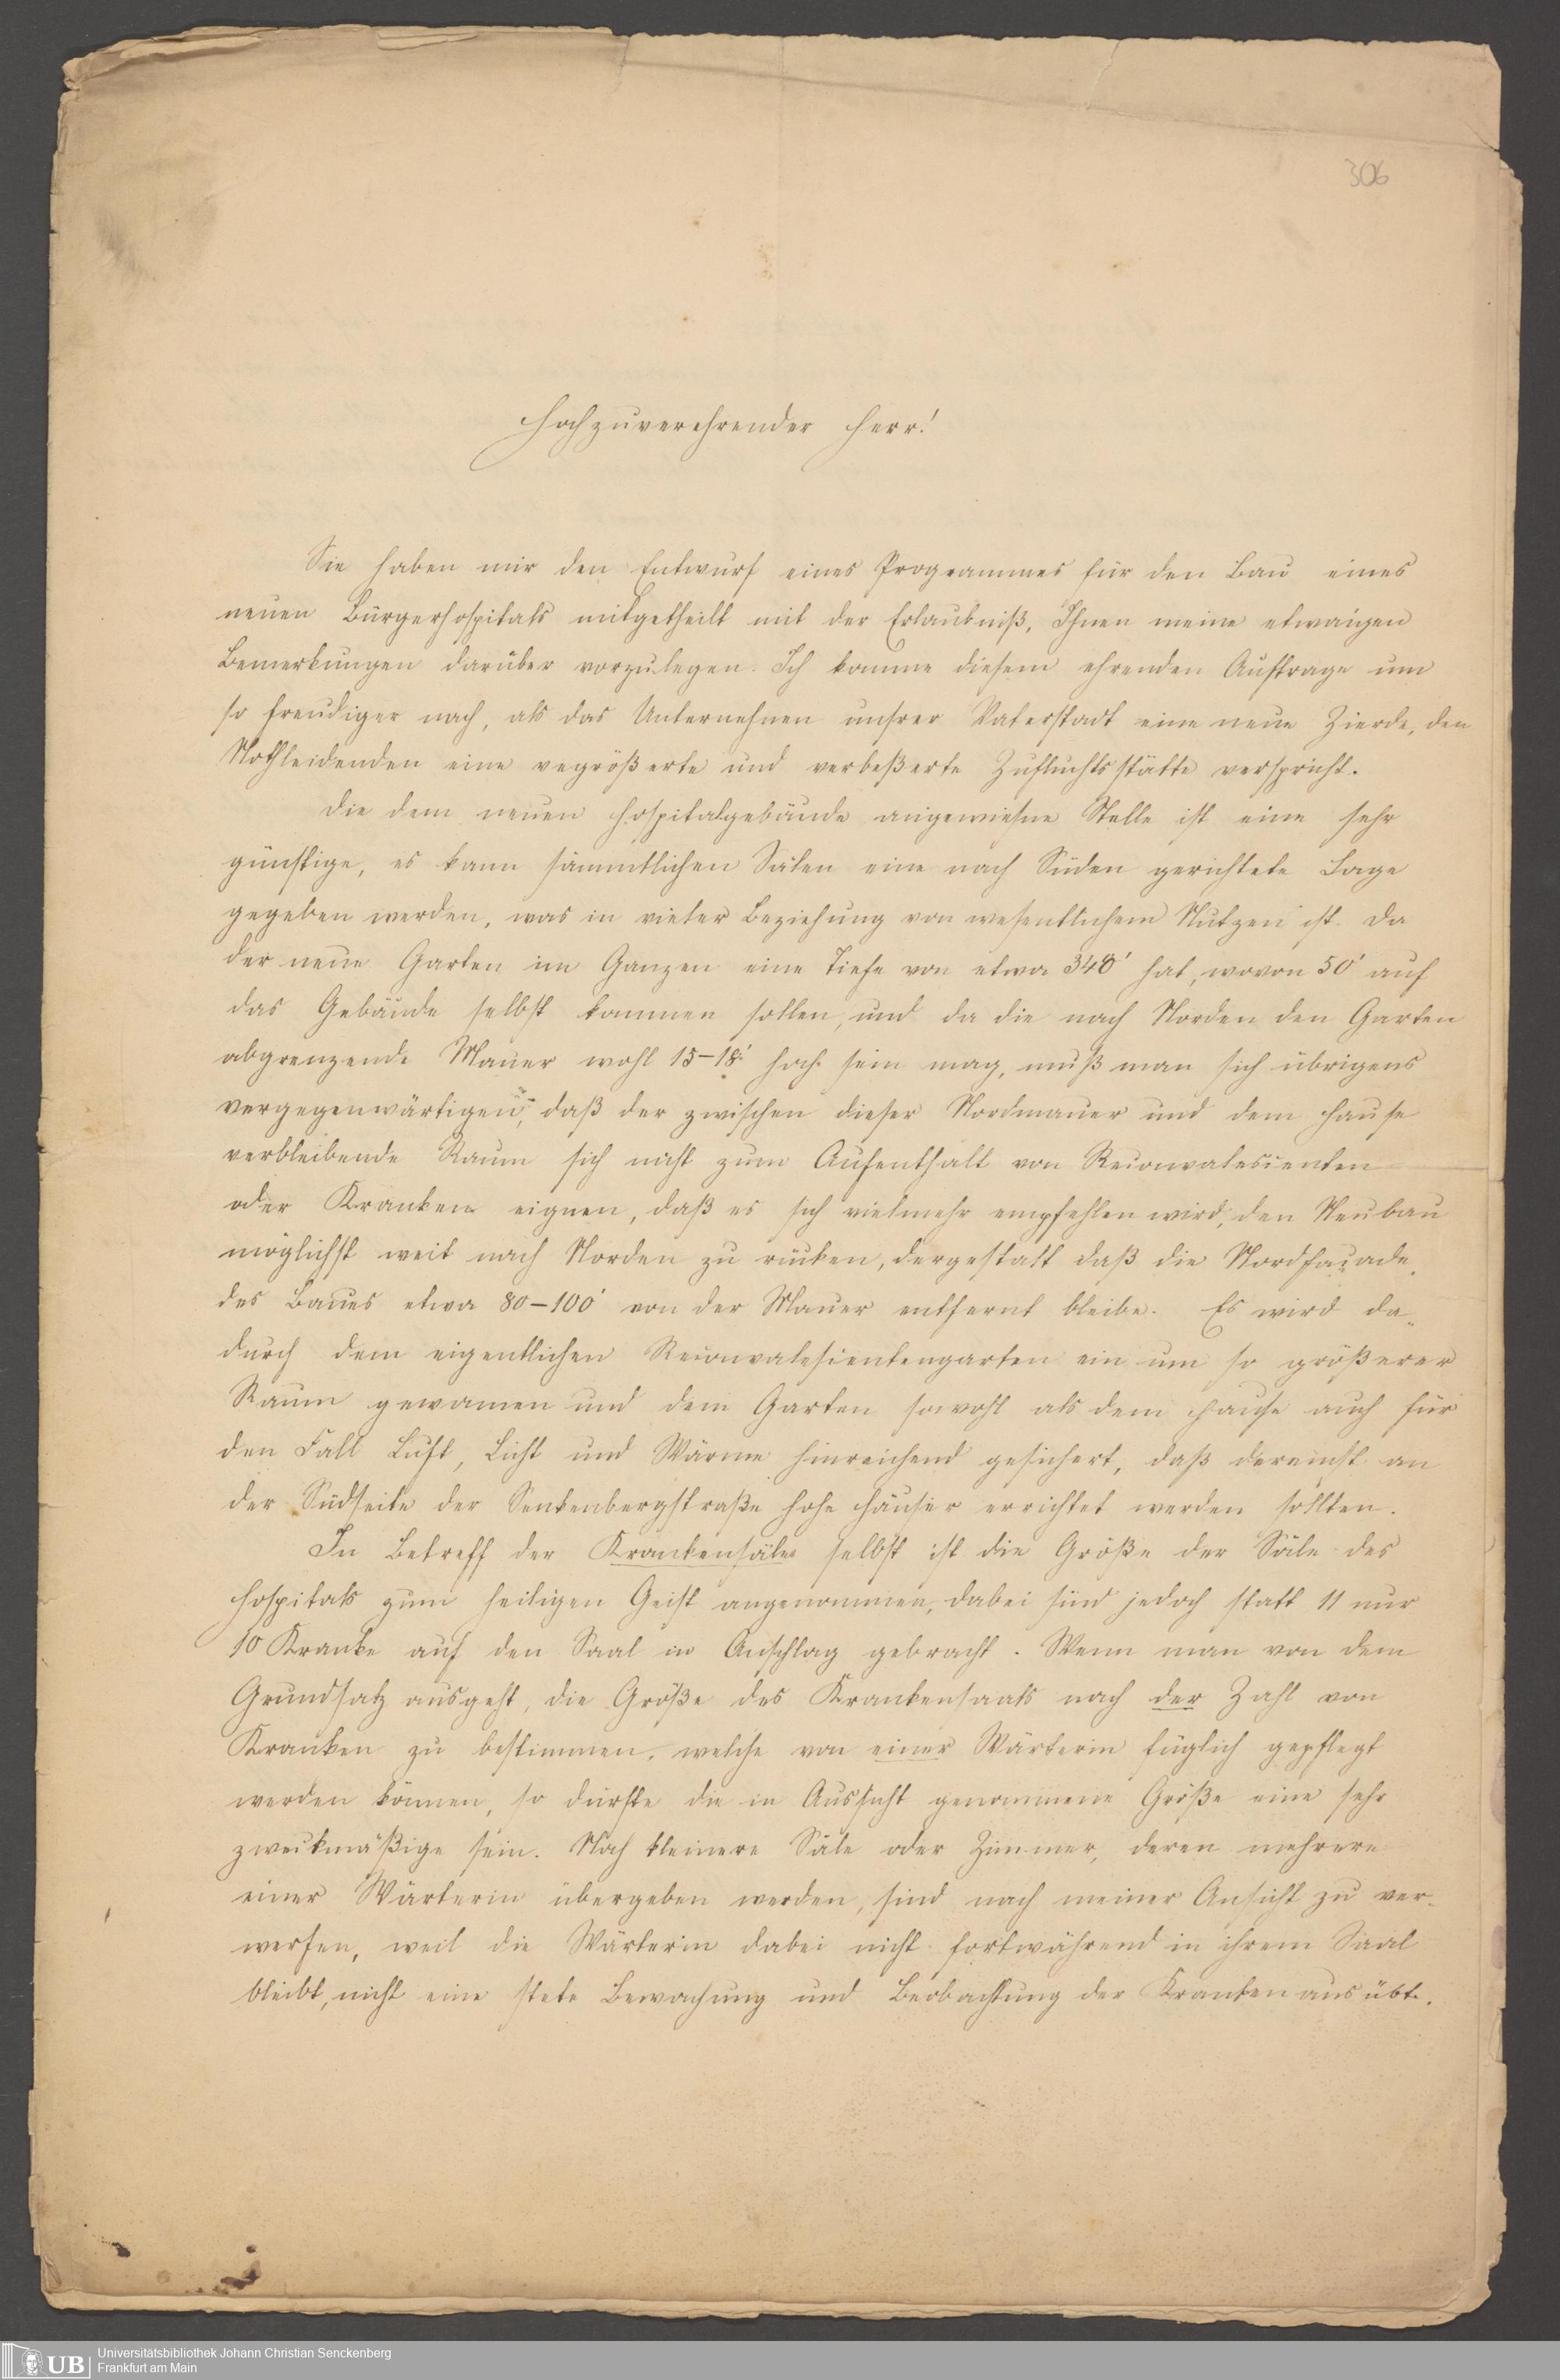 306
Hochzuverehrender Herr!
Sie haben mir den Entwurf eines Programmes für den Bau eines
neuen Bürgerhospitals mitgetheilt mit der Erlaubniß, Ihnen meine etwaigen
Bemerkungen darüber vorzulegen. Ich komme diesem ehrenden Auftrage um
so freudiger nach, als das Unternehmen unsrer Vaterstadt eine neue Zierde, den
Nothleidenden eine vegrößerte und verbeßerte Zufluchtsstätte verspricht.
Die dem neuen Hospitalgebäude angewiesne Stelle ist eine sehr
günstige, es kann sämmtlichen Sälen eine nach Süden gerichtete Lage
gegeben werden, was in vieler Beziehung von wesentlichem Nutzen ist. Da
der neue Garten im Ganzen eine Tiefe von etwa 340' hat, wovon 50' auf
das Gebäude selbst kommen sollen, und da die nach Norden den Garten
abgrenzende Mauer wohl 15–18' hoch sein mag, muß man sich übrigens
vergegenwärtigen, daß der zwischen dieser Nordmauer und dem Hause
verbleibende Raum sich nicht zum Aufenthalt von Reconvalescienten
oder Kranken eignen, daß es sich vielmehr empfehlen wird, den Neubau
möglichst weit nach Norden zu rücken, dergestalt daß die Nordfaçade
des Baues etwa 80–100' von der Mauer entfernt bleibe. Es wird da-
durch dem eigentlichen Reconvalescientengarten ein um so größerer
Raum gewonnen und dem Garten sowohl als dem Hause auch für
den Fall Luft, Licht und Wärme hinreichend gesichert, daß dereinst an
der Südseite der Senkenbergstraße hohe Häuser errichtet werden sollten.
In Betreff der Krankensäle selbst ist die Größe der Säle des
Hospitals zum heiligen Geist angenommen, dabei sind jedoch statt 11 nur
10 Kranke auf den Saal in Anschlag gebracht. Wenn man von dem
Grundsatz ausgeht, die Größe des Krankensaals nach der Zahl von
Kranken zu bestimmen, welche von einer Wärterin füglich gepflegt
werden können, so dürfte die in Aussicht genommene Größe eine sehr
zweckmäßige sein. Noch kleinere Säle oder Zimmer, deren mehrere
einer Wärterin übergeben werden, sind nach meiner Ansicht zu ver-
werfen, weil die Wärterin dabei nicht fortwährend in ihrem Saal
bleibt, nicht eine stete Bewachung und Beobachtung der Kranken ausübt.
UB
Universitätsbibliothek Johann Christian Senckenberg
Frankfurt am Main